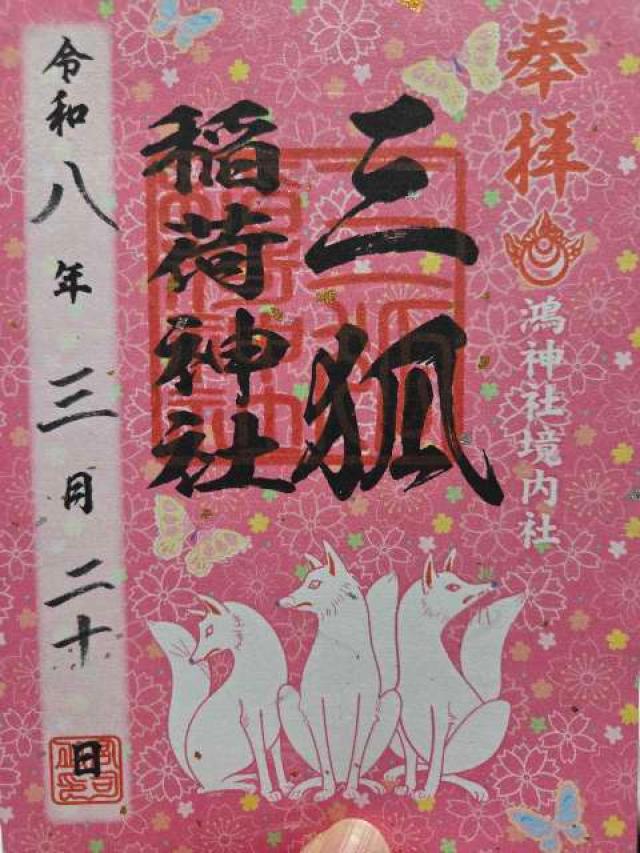 奉拝
鴻神社境内社
三狐
稲荷神社
令和八年三月二十日